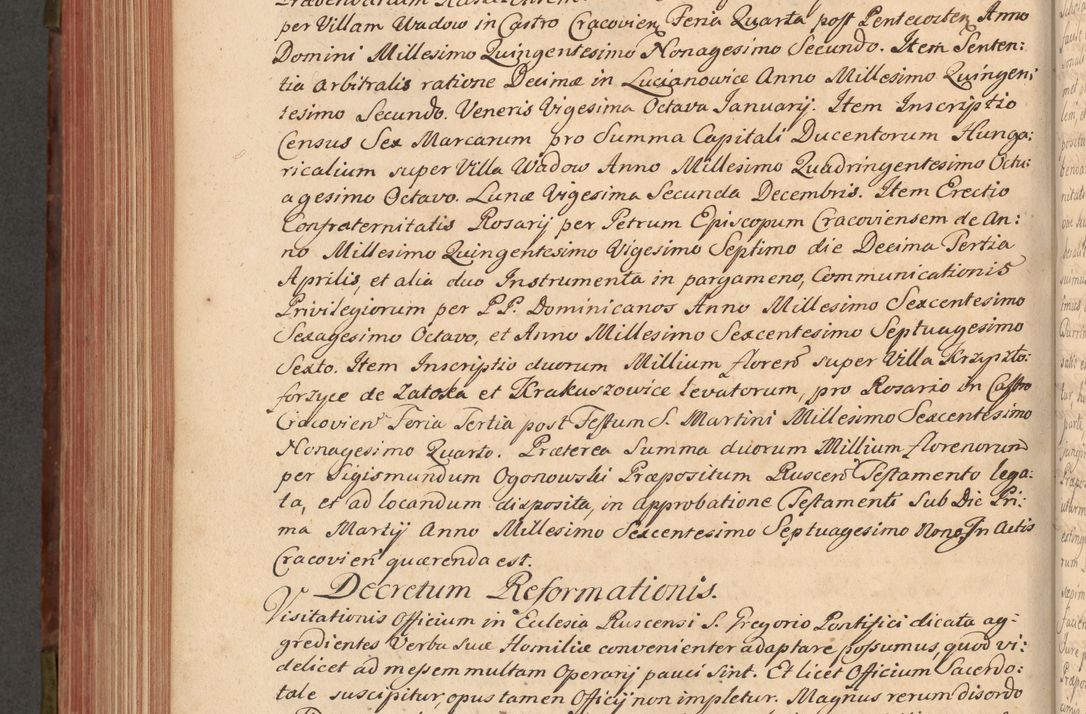 per Villam Wadow in Castro Cracovien̄ Feria Quarta post Pentecosten Anno
Domini Millesimo Quingentesimo Nonagesimo Secundo. Item Senten-
tia arbitralis ratione Decimæ in Lucianowice Anno Millesimo Quingen:
tesimo Secundo. Veneris Vigesima Octava Januarij. Item Inscriptio
Census Sex Marcarum pro Summa Capitali Ducentorum Hunga:
ricalium super Villa Wadow Anno Millesimo Quadringentesimo Octu:
agesimo Octavo. Lunæ Vigesima Secunda Decembris. Item Erectio
Confraternitatis Rosarij per Petrum Episcopum Cracoviensem de An:
no Millesimo Quingentesimo Vigesimo Septimo die Decima Tertia
Aprilis, et alia duo Instrumenta in pargameno, Communicationis
Privilegiorum per P.P. Dominicanos Anno Millesimo Sexcentesimo
Sexagesimo Octavo, et Anno Millesimo Sexcentesimo Septuagesimo
Sexto. Item Inscriptio duorum Millium floren̄ super Villa Krzyszto:
forzyce de Zatoka et Krakuszowice levatorum, pro Rosario in Castro
Cracovien̄ Feria Tertia post Festum S. Martini Millesimo Sexcentesimo
Nonagesimo Quarto. Præterea Summa duorum Millium florenorum
per Sigismundum Ogonowski Præpositum Ruscen̄ Testamento lega:
ta, et ad locandum disposita, in approbatione Testamenti sub Die Pri:
ma Martij Anno Millesimo Sexcentesimo Septuagesimo Nono, In Actis
Cracovien̄ quærenda est.
Decretum Reformationis.
Visitationis Officium in Eclesia Ruscensi S. Gregorio Pontifici dicata ag:
gredientes Verba suæ Homiliæ convenienter adaptare possumus, quod vi:
delicet ad messem multam Operarij pauci sint. Et licet Officium Sacerdo:
tale suscipitur, opus tamen Officij non impletur. Magnus rerum disordo